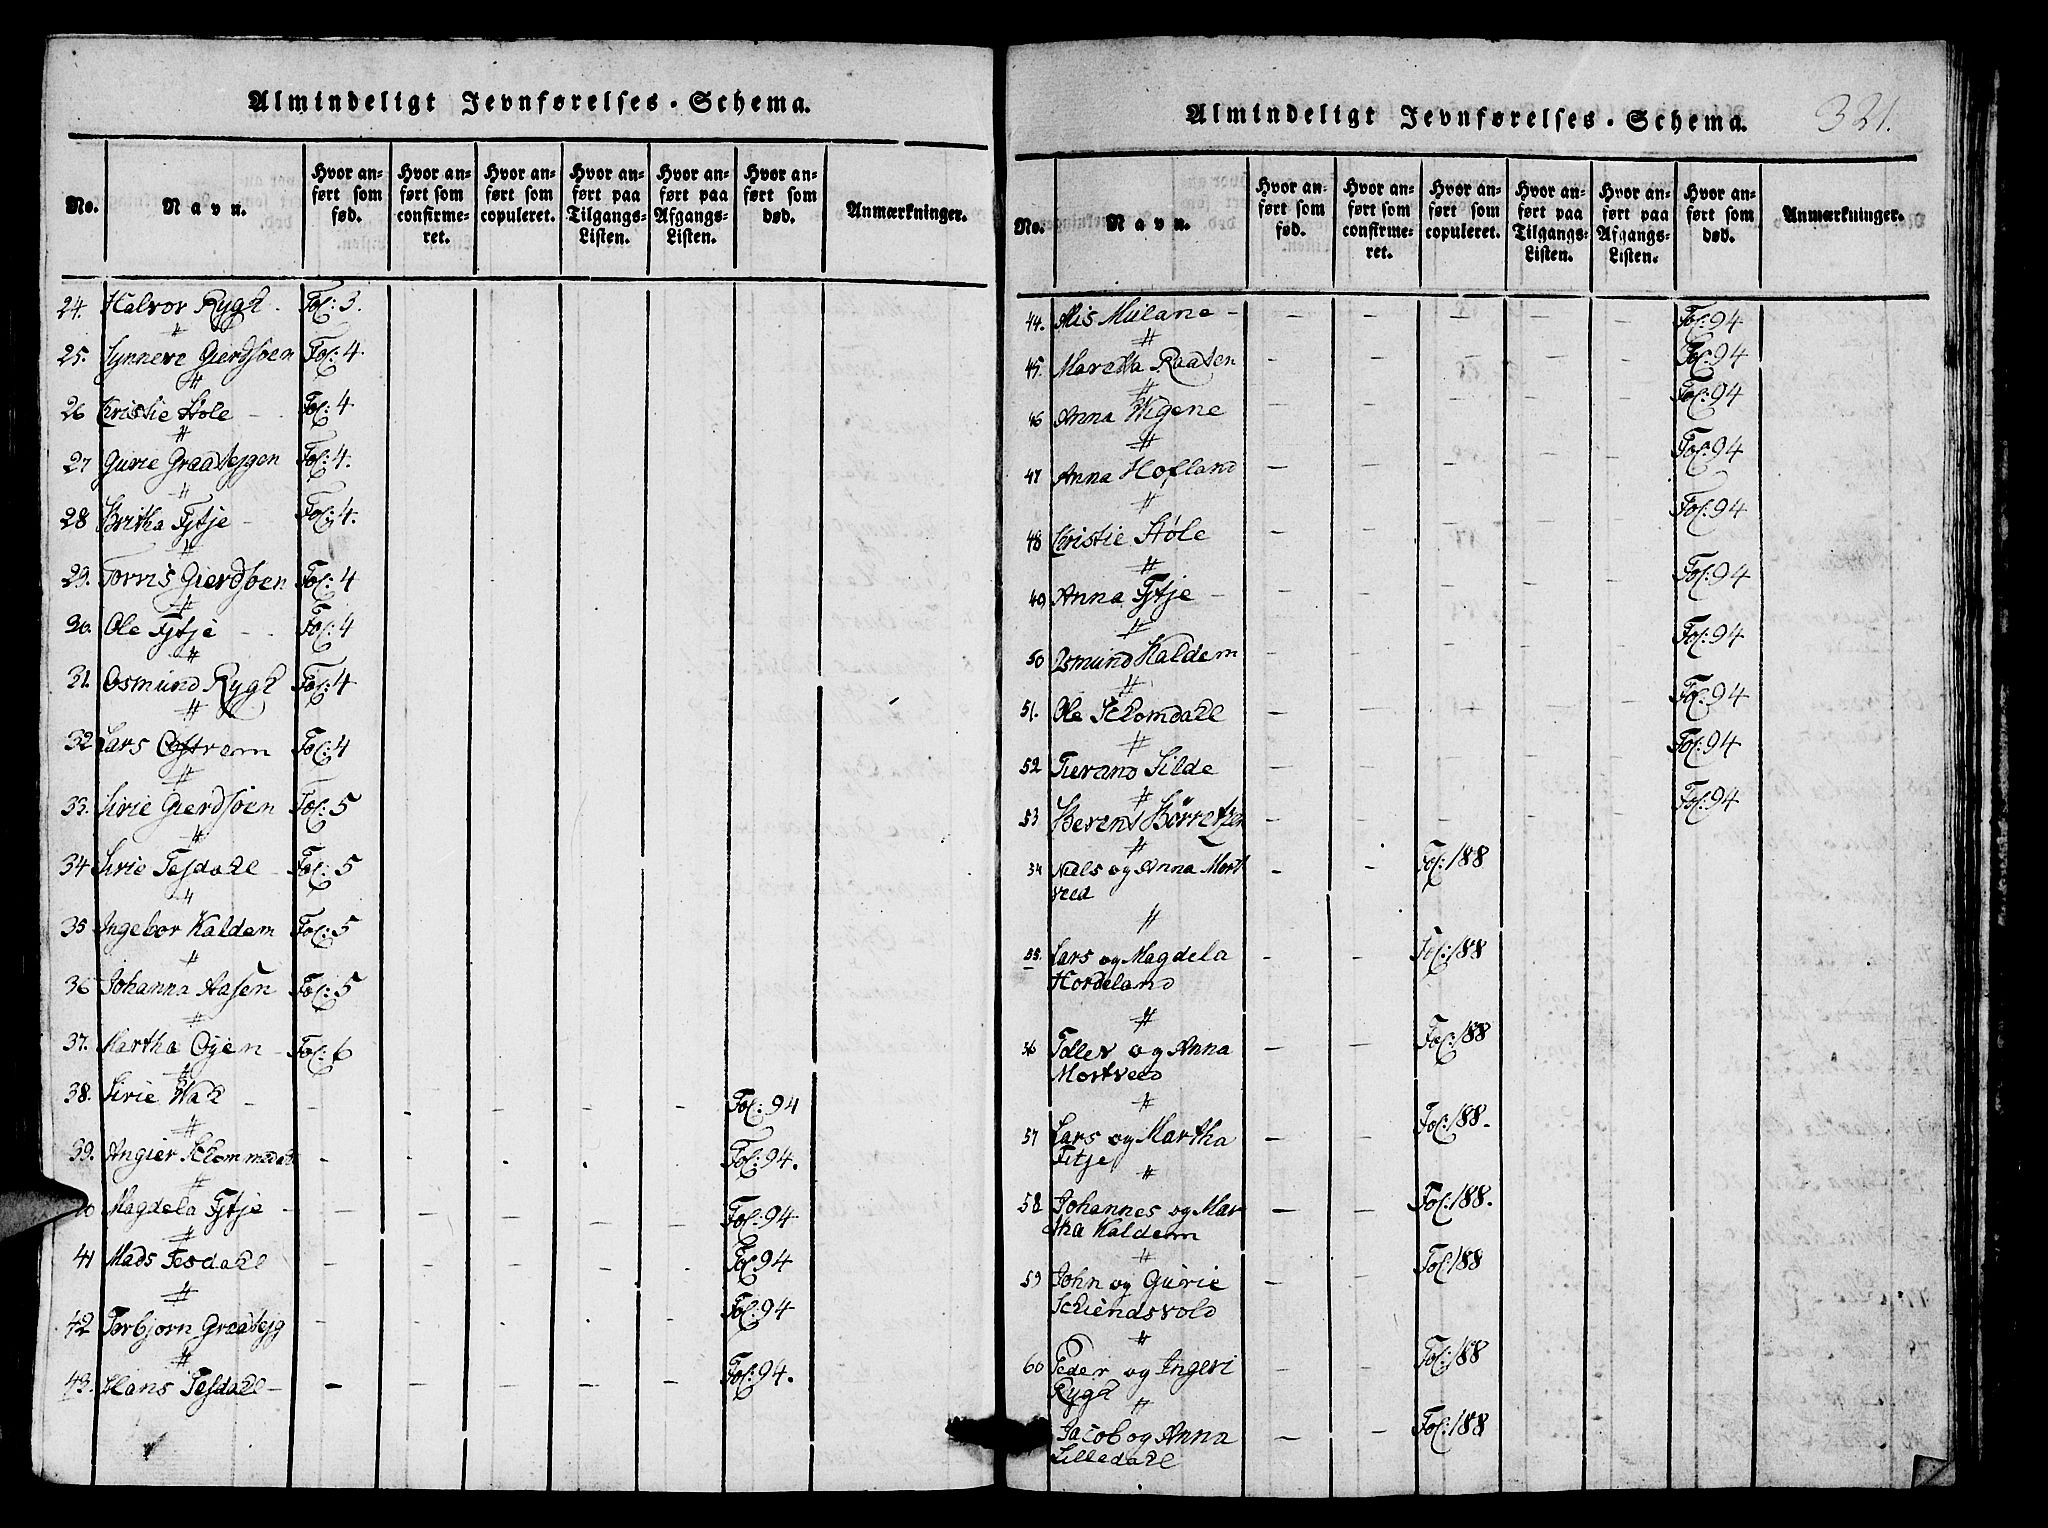 Almindeligt Jevnførelses-Schema.
No. Navn. Hvor anført som fød. Hvor anført som confirmeret. Hvor anført som copuleret. Hvor anført paa Tilgangs-Listen. Hvor anført paa Afgangs-Listen. Hvor anført som død. Anmærkninger.
24. Halvor Rygh. Fol: 3.
25. Synneve Gierdsøen Fol: 4.
26 Christie Høle Fol: 4
27 Gurie Graasteigen Fol: 4.
28 Britha Fytje Fol: 4.
29. Torris Gierdsøen Fol: 4
30. Ole Fytje Fol: 4
31. Osmund Rygh Fol: 4
32 Lars Ostrem Fol: 4
33. Sirie Gierdsøen Fol: 5
34 Sirie Tesdahl Fol: 5
35 Ingebor Kaldem Fol: 5
36 Johanna Aasen Fol: 5
37. Martha Oyen Fol: 6
38. Sirie Fol: 94
39. Fol: 94.
40 Magdela Fytje Fol: 94
41 Mads Tesdahl Fol: 94
42 Torbjorn Graasteig Fol: 94
43. Hans Tesdahl Fol: 94.
Almindeligt Jevnførelses-Schema. 321.
No. Navn. Hvor anført som fød. Hvor anført som confirmeret. Hvor anført som copuleret. Hvor anført paa Tilgangs-Listen. Hvor anført paa Afgangs-Listen. Hvor anført som død. Anmærkninger.
44. Fol: 94
45. Maretha Fol: 94
46 Anna Fol: 94
47 Anna Hofland Fol: 94
48 Christie Høle Fol: 94
49 Anna Fytje Fol: 94
50 Osmund Kaldem Fol: 94
51. Ole Fol: 94
52 Silde Fol: 94
53 Fol: 94
54 Niels og Anna Mort
veed Fol: 188
55. Lars og Magdela
Hordeland Fol: 188
56 Tollev og Anna
Mortveed Fol: 188
57 Lars og Martha
Fitje Fol: 188.
58 Johannes og Mar
tha Kaldem Fol: 188.
59 John og Gurie
Fol: 188
60 Peder og Ingeri
Rygh Fol: 188
Jacob og Anna
Lilledahl Fol: 188